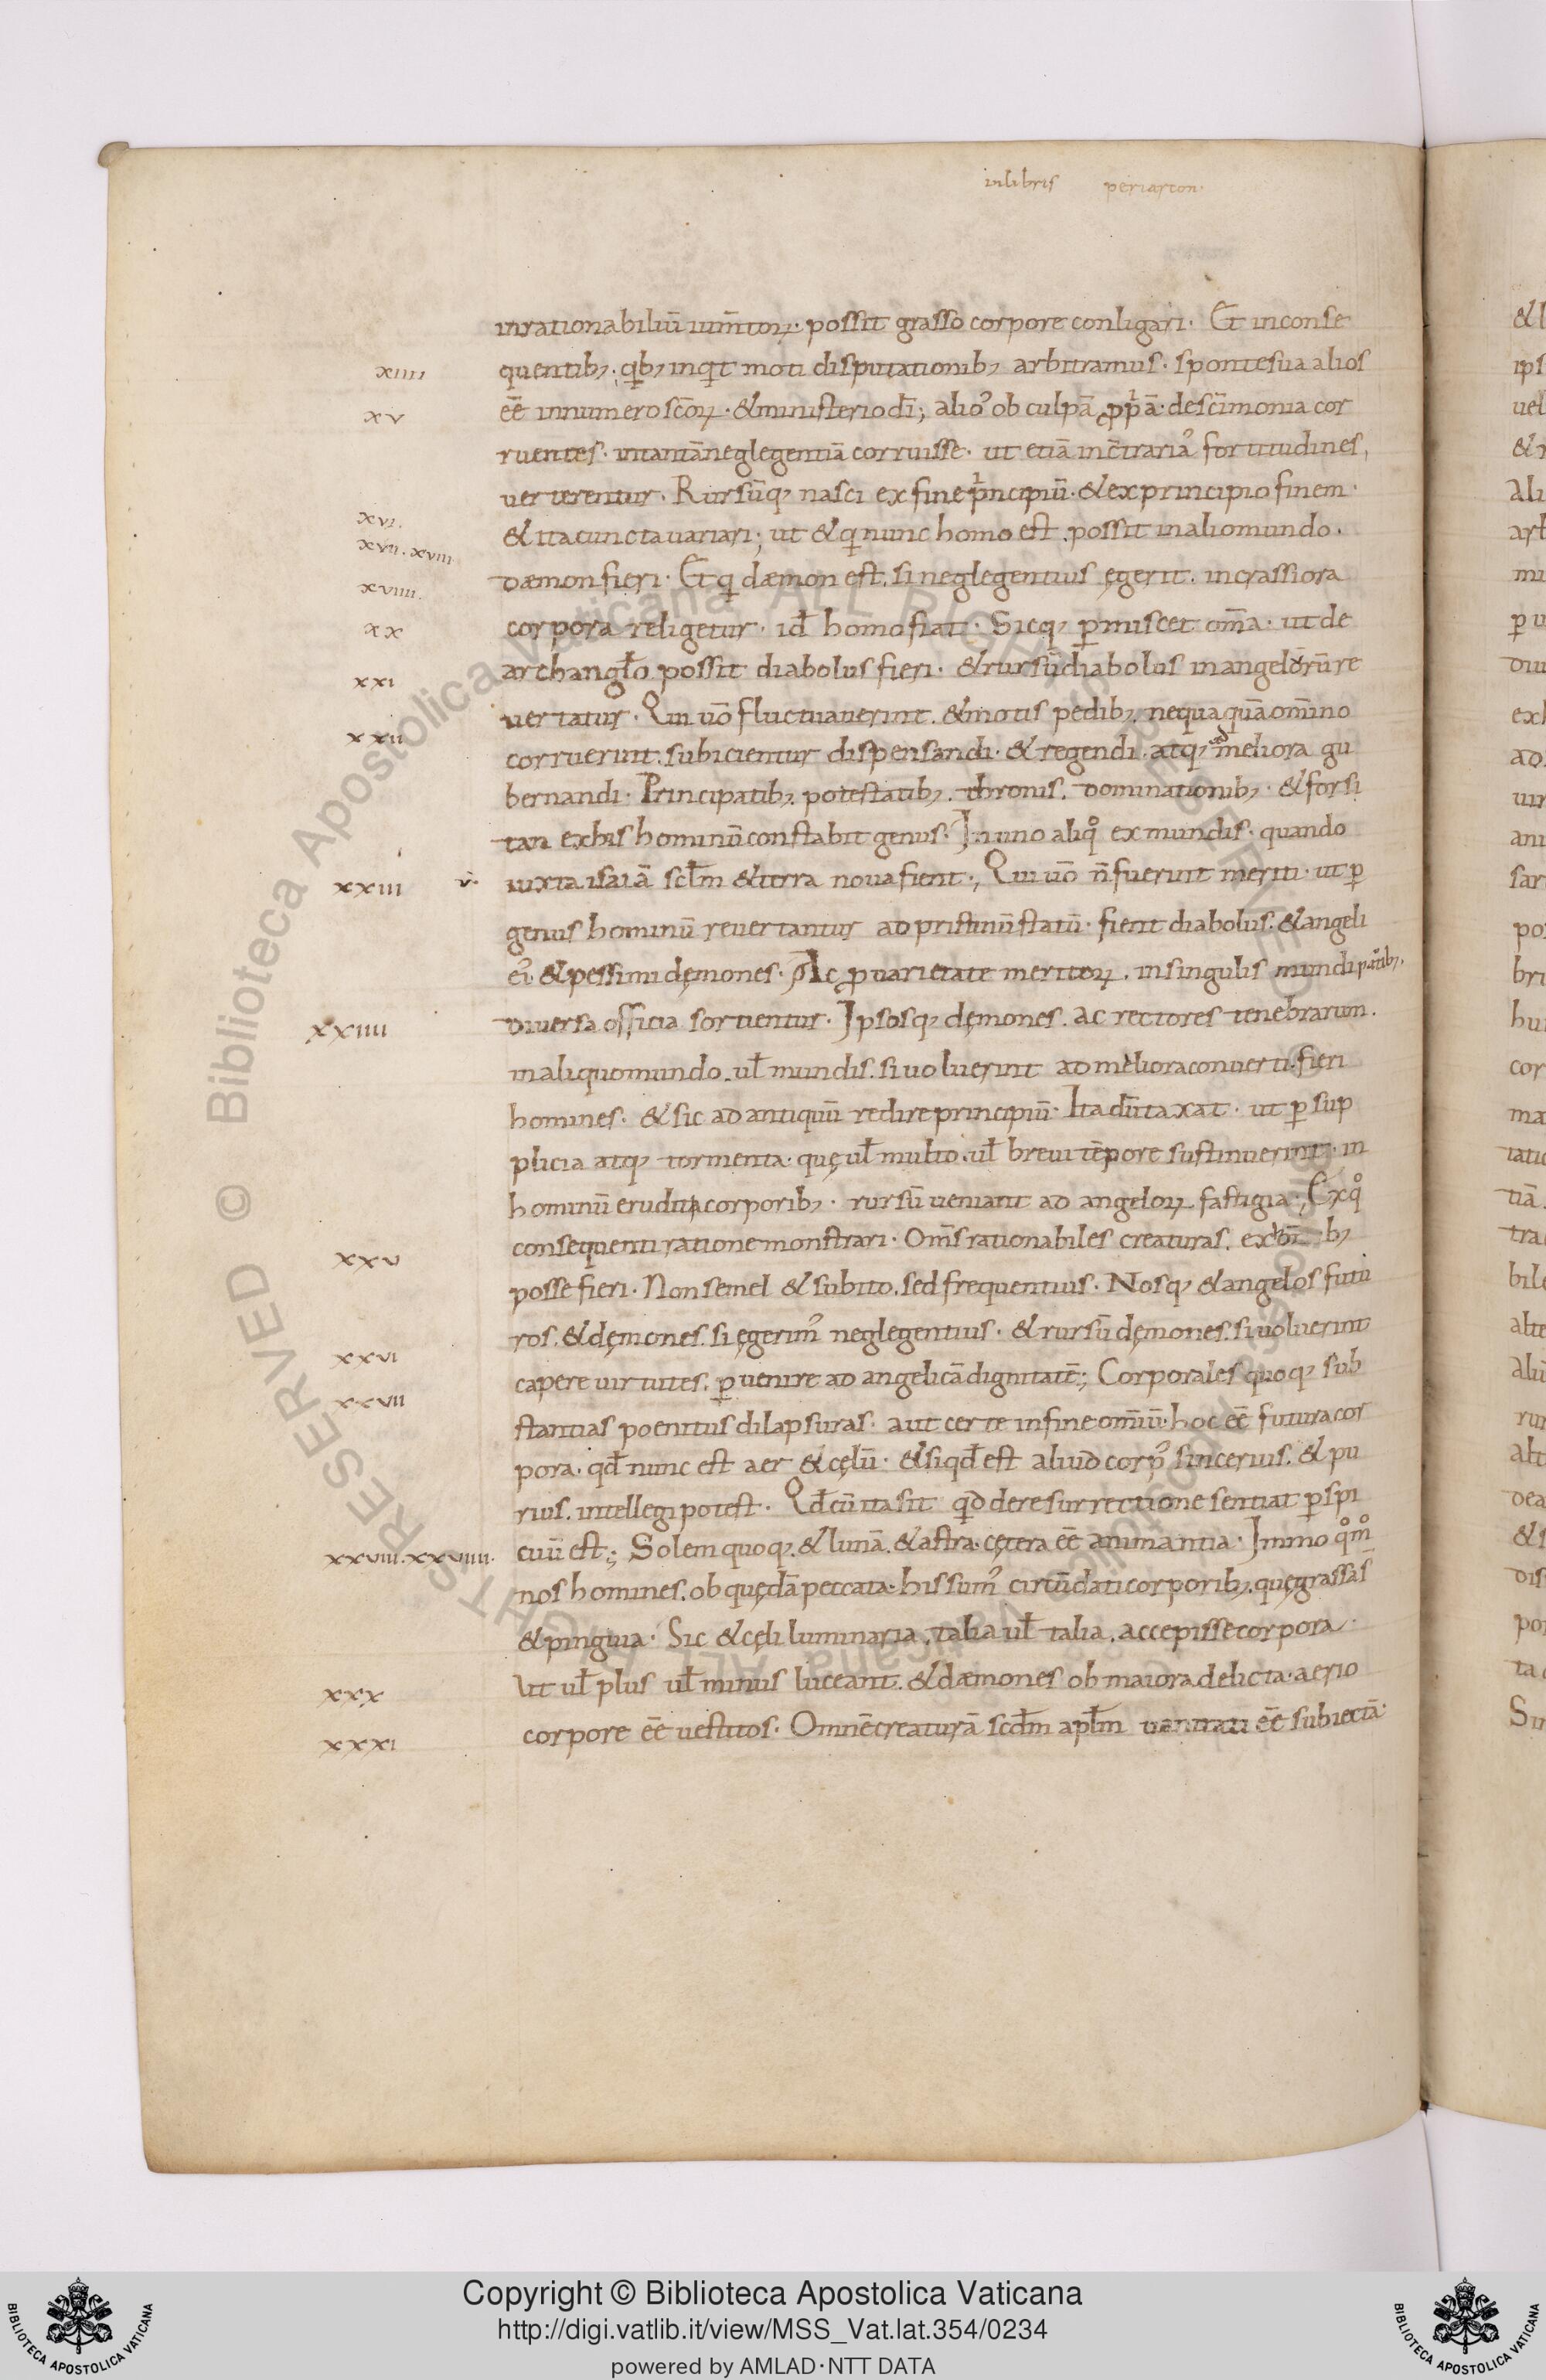 in libris periarcon.
inrationabiliū ium̄toꝝ· possit grasso corpore conligari· Et inconse
xiiii quentibꝫ· qͥbꝫ inqͥt moti disputationibꝫ arbitramus· sponte sua alios
xv ēē in numero scōꝝ· & ministerio dī; alioꝰ ob culpā ꝓpͥā· de scīmonia cor
ruentes· in tantā neglegentiā corruisse· ut etiā in c̄trariaꝰ fortitudines,
uerterentur· Rursūqꝫ nasci ex fine pͥncipiū· & ex principio finem·
xvi. & ita cuncta uariari; ut & qͥ nunc homo est. possit in alio mundo.
xvii. xviii
xviiii. dæmon fieri· Et qͥ dæmon est. si neglegentius ęgerit. in crassiora
xx corpora religetur· id homo fiat· Sicqꝫ ꝑmiscet om̄a· ut de
xxi archangło possit diabolus fieri· & rursū diabolus in angelorū re
uertatur· Qui uō fluctuauerint. & motis pedibꝫ. nequaquā om̄ino
xxii corruerint. subicientur dispensandi· & regendi· atqꝫ ad meliora gu
bernandi· Principatibꝫ. potestatibꝫ. thronis. dominationibꝫ· & forsi
tan ex his hominū constabit genus· In uno aliqͦ ex mundis· quando
xxiii iuxta isaiā scłm & terra noua fient·; Qui uō n̄ fuerint meriti· ut ꝑ
genus hominū reuertantur ad pristinū statū· fient diabolus. & angeli
eiꝰ. & pessimi dęmones· Ac ꝓ uarietate meritoꝝ. in singulis mundi partibꝫ.
xxiiii diuersa officia sortientur· Ipsosqꝫ dęmones. ac rectores tenebrarum.
in aliquo mundo. uł mundis. si uoluerint ad meliora conuerti. fieri
homines· & sic ad antiquū redire principiū· Ita dūtaxat· ut ꝑ sup
plicia atqꝫ tormenta· quę uł multo. uł breui tēpore sustinuerint· in
hominū eruditi corporibꝫ· rursū ueniant ad angeloꝝ fastigia·; Ex qͦ
xxv consequenti ratione monstrari· Om̄s rationabiles creaturas. ex om̄ibꝫ
posse fieri· Non semel & subito. sed frequentius· Nosqꝫ & angelos futu
ros. & dęmones. si ęgerimꝰ neglegentius· & rursū dęmones. si uoluerint
xxvi capere uirtutes. ꝑuenire ad angelicā dignitatē·; Corporales quoqꝫ sub
xxvii stantias poenitus dilapsuras· aut certe in fine om̄iū· hoc ēē futura cor
pora· qđ nunc est aer & cęlū· & siqđ est aliud corpꝰ sincerius. & pu
rius. intellegi potest· Qđ cū ita sit qͥd de resurrectione sentiat ꝑspi
xxviii. xxviiii. cuū est·; Solem quoqꝫ. & lunā. & astra· cętera ēē animantia· Immo qͦmͦ
nos homines. ob quędā peccata· his sumꝰ circūdati corporibꝫ. quę grassa s̄
& pinguia· Sic & cęli luminaria. talia uł talia. accepisse corpora·
xxx Ut uł plus uł minus luceant. & dæmones ob maiora delicta· aerio
xxxi corpore ēē uestitos· Omnē creaturā scđm apłm uanitati ēē subiectā·
Copyright © Biblioteca Apostolica Vaticana
http://digi.vatlib.it/view/MSS_Vat.lat.354/0234
powered by AMLAD·NTT DATA
BIBLIOTECA APOSTOLICA VATICANA
BIBLIOTECA APOSTOLICA VATICANA